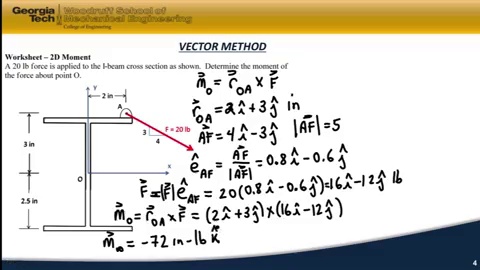 Georgia Tech
Woodruff School of
Mechanical Engineering
College of Engineering
VECTOR METHOD
Worksheet – 2D Moment
A 20 lb force is applied to the I-beam cross section as shown. Determine the moment of
the force about point O.
Y
2 in
A
F = 20 lb
3
4
3 in
O
x
2.5 in
M⃗ₒ = r⃗_OA × F⃗
r⃗_OA = 2î + 3ĵ in
A⃗F = 4î − 3ĵ |A⃗F| = 5
ê_AF = A⃗F / |A⃗F| = 0.8î − 0.6ĵ
F⃗ = |F⃗| ê_AF = 20(0.8î − 0.6ĵ) = 16î − 12ĵ lb
M⃗ₒ = r⃗_OA × F⃗ = (2î + 3ĵ) × (16î − 12ĵ)
M⃗ₒ = −72 in-lb k̂
4